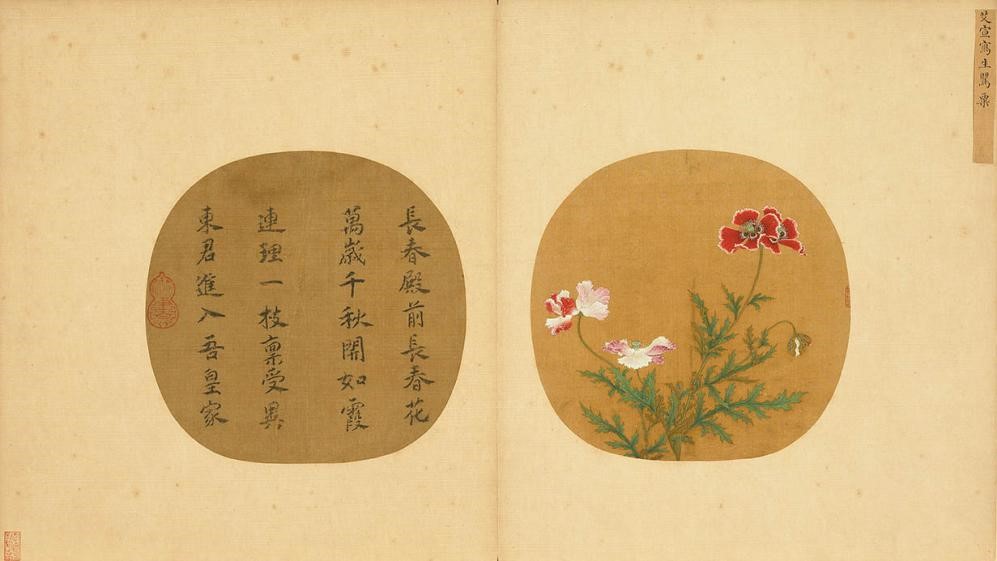 長春殿前長春花
萬歲千秋開如霞
連理一枝稟受異
東君進入吾皇家
艾宣寫生罌粟